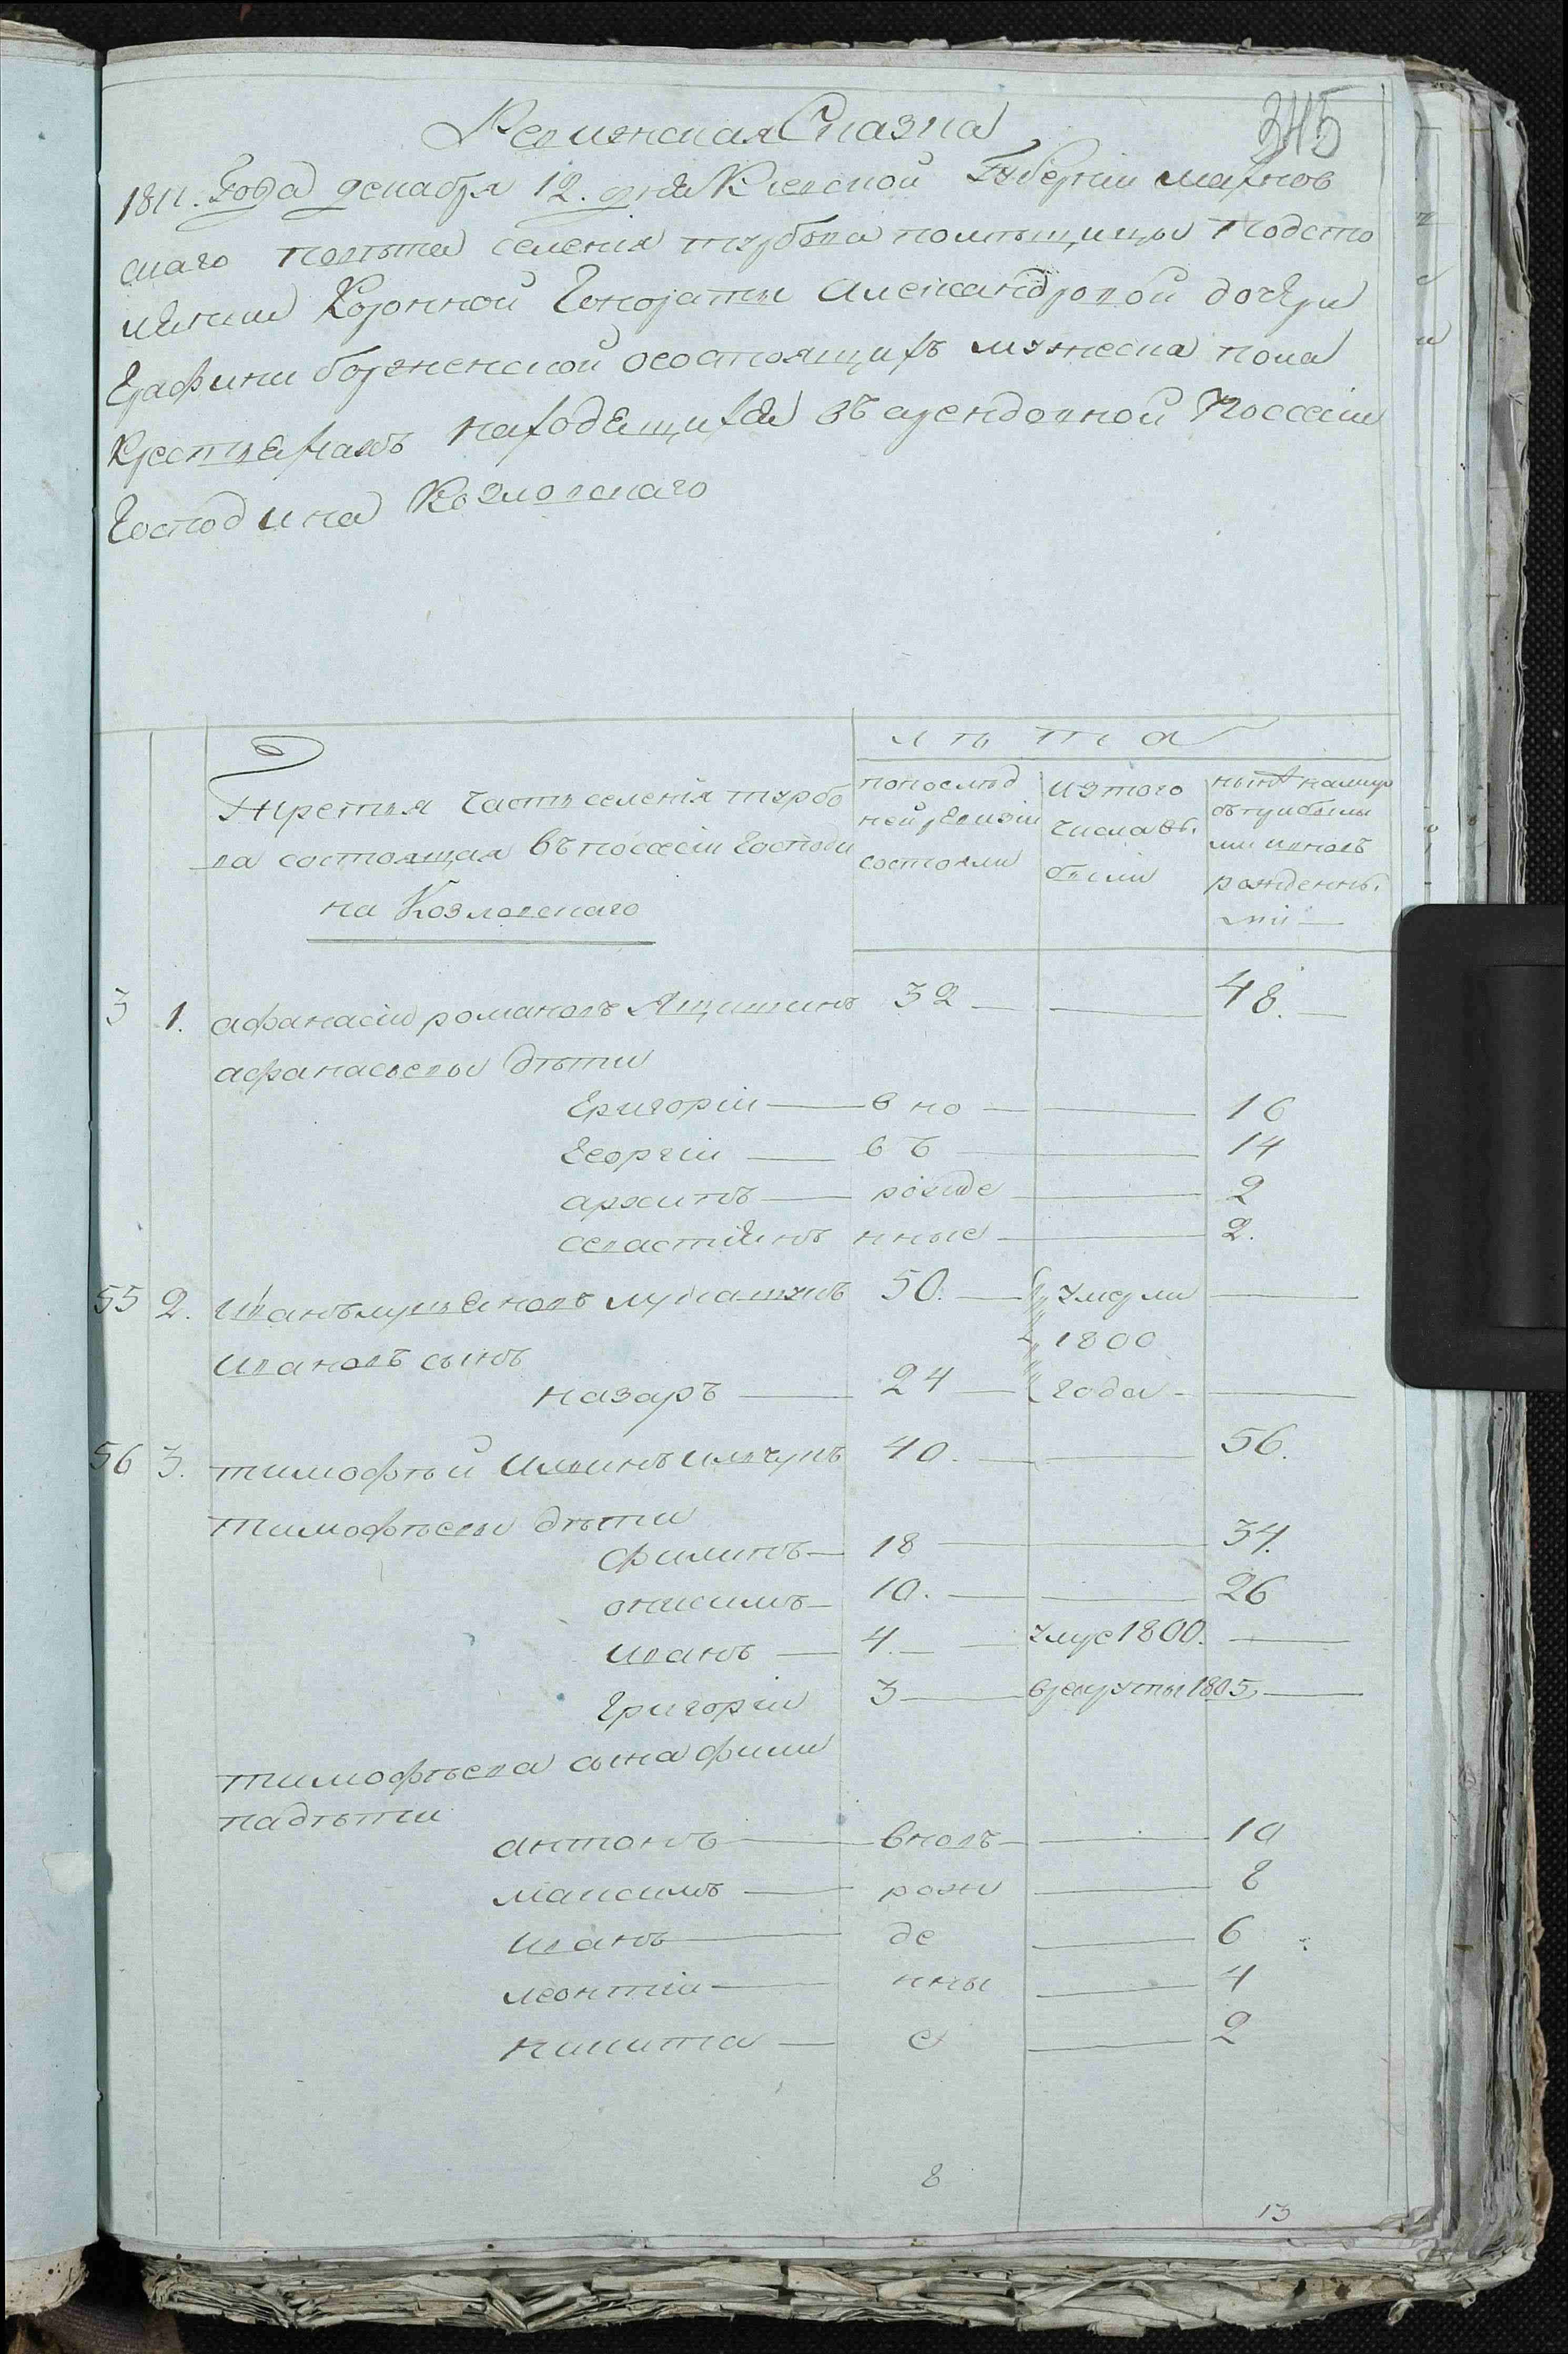 345
Ревижская Сказка
1811. Года декабря 12. дня Киевской Губернии махнов
скаго повѣта селенія турбова помѣщицы Подсто
лѣнши Коронной Гонораты Александровой дочери
Графини боржненской осостоящихъ мужеска пола
Крестьянахъ находящихся въ арендовной Поссесіи
Господина Козловскаго
лѣта
Третья Часть селенія турбо
ва состоящая въ посесіи Господи
на Козловскаго
попослѣд
ней ревизіи
состояли
изтого
числа вы.
были
нынѣ налицо
съ прибылы
ми ивновъ
рожденны.
ми
3 1. афанасій романовъ Ящишинъ 32 48.
афанасьевы дѣти
Григорій вно 16
Георгій въ 14
архипъ рожде 2
севастіянъ нные 2.
55 2. Иванъ лукьяновъ лукашукъ 50. умерли
1800
Ивановъ сынъ
назаръ 24 года
56 3. тимофѣй Ильинъ ильчукъ 40. 56.
Тимофѣевы дѣти
филипъ 18 34.
онисимъ 10. 26
иванъ 4. умре 1800.
Григорій 3 врекруты 1805
тимофѣева сына фили
па дѣти
антонъ вновъ 10
максимъ рож 8
Иванъ де 6
леонтій нны 4
никита е 2
8
13